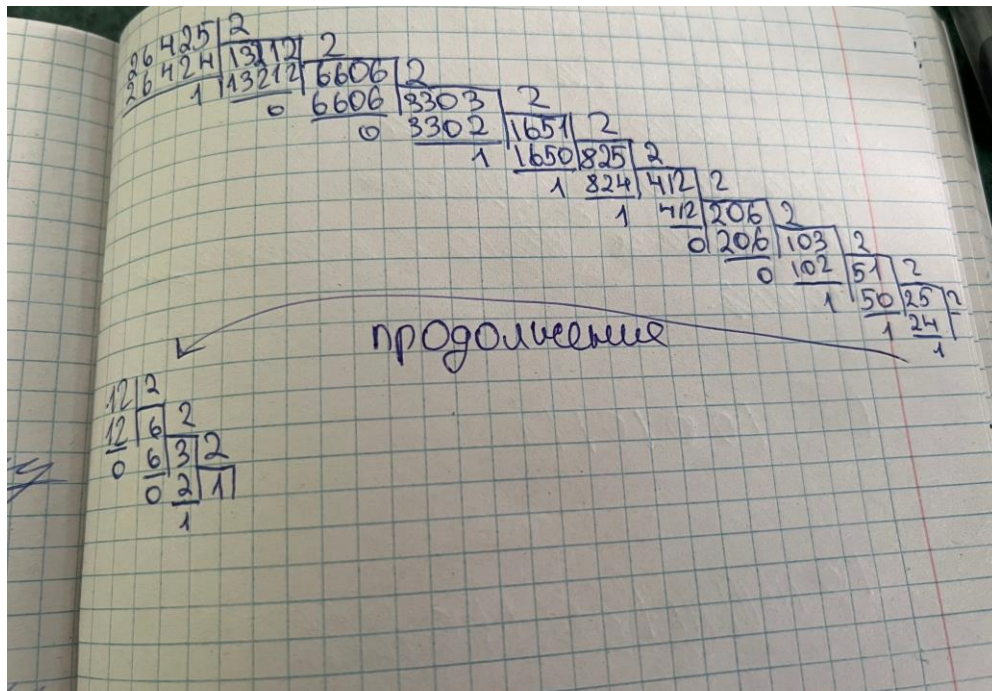 26425 2
26424 13212 2
1 13212 6606 2
0 6606 3303 2
0 3302 1651 2
1 1650 825 2
1 824 412 2
1 412 206 2
0 206 103 2
0 102 51 2
1 50 25 2
1 24
1
продолжение
12 2
12 6 2
0 6 3 2
0 2 1
1